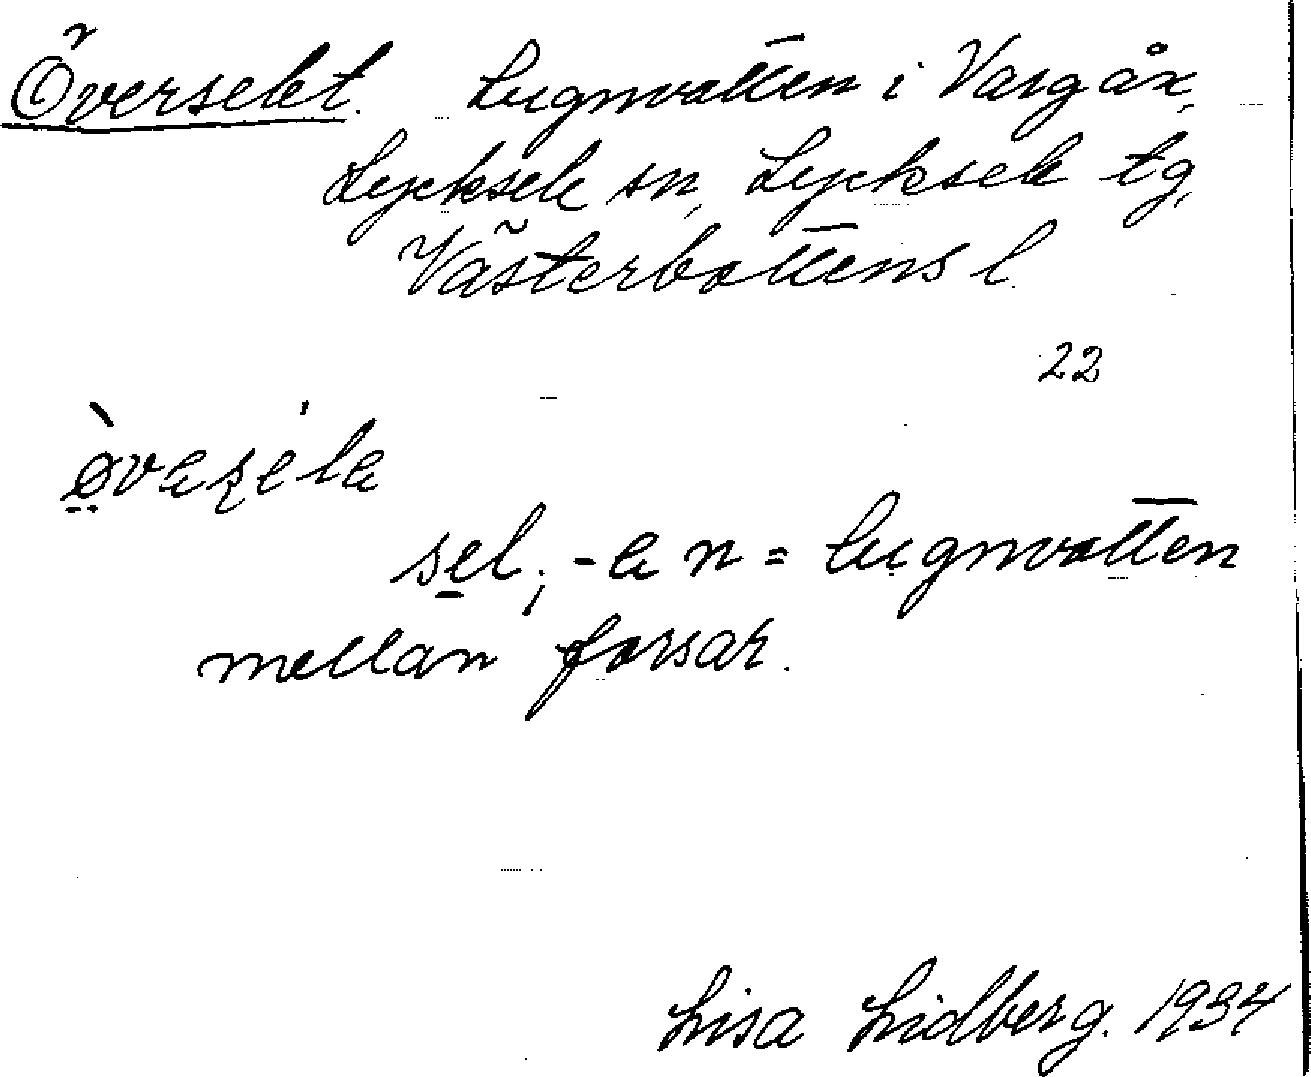 Överselet. Lugnvatten i Vargån,
Lycksele sn, Lycksele tg,
Västerbottens l.
22
sel, -e n = lugnvatten
mellan forsar.
Lisa Lidberg. 1934